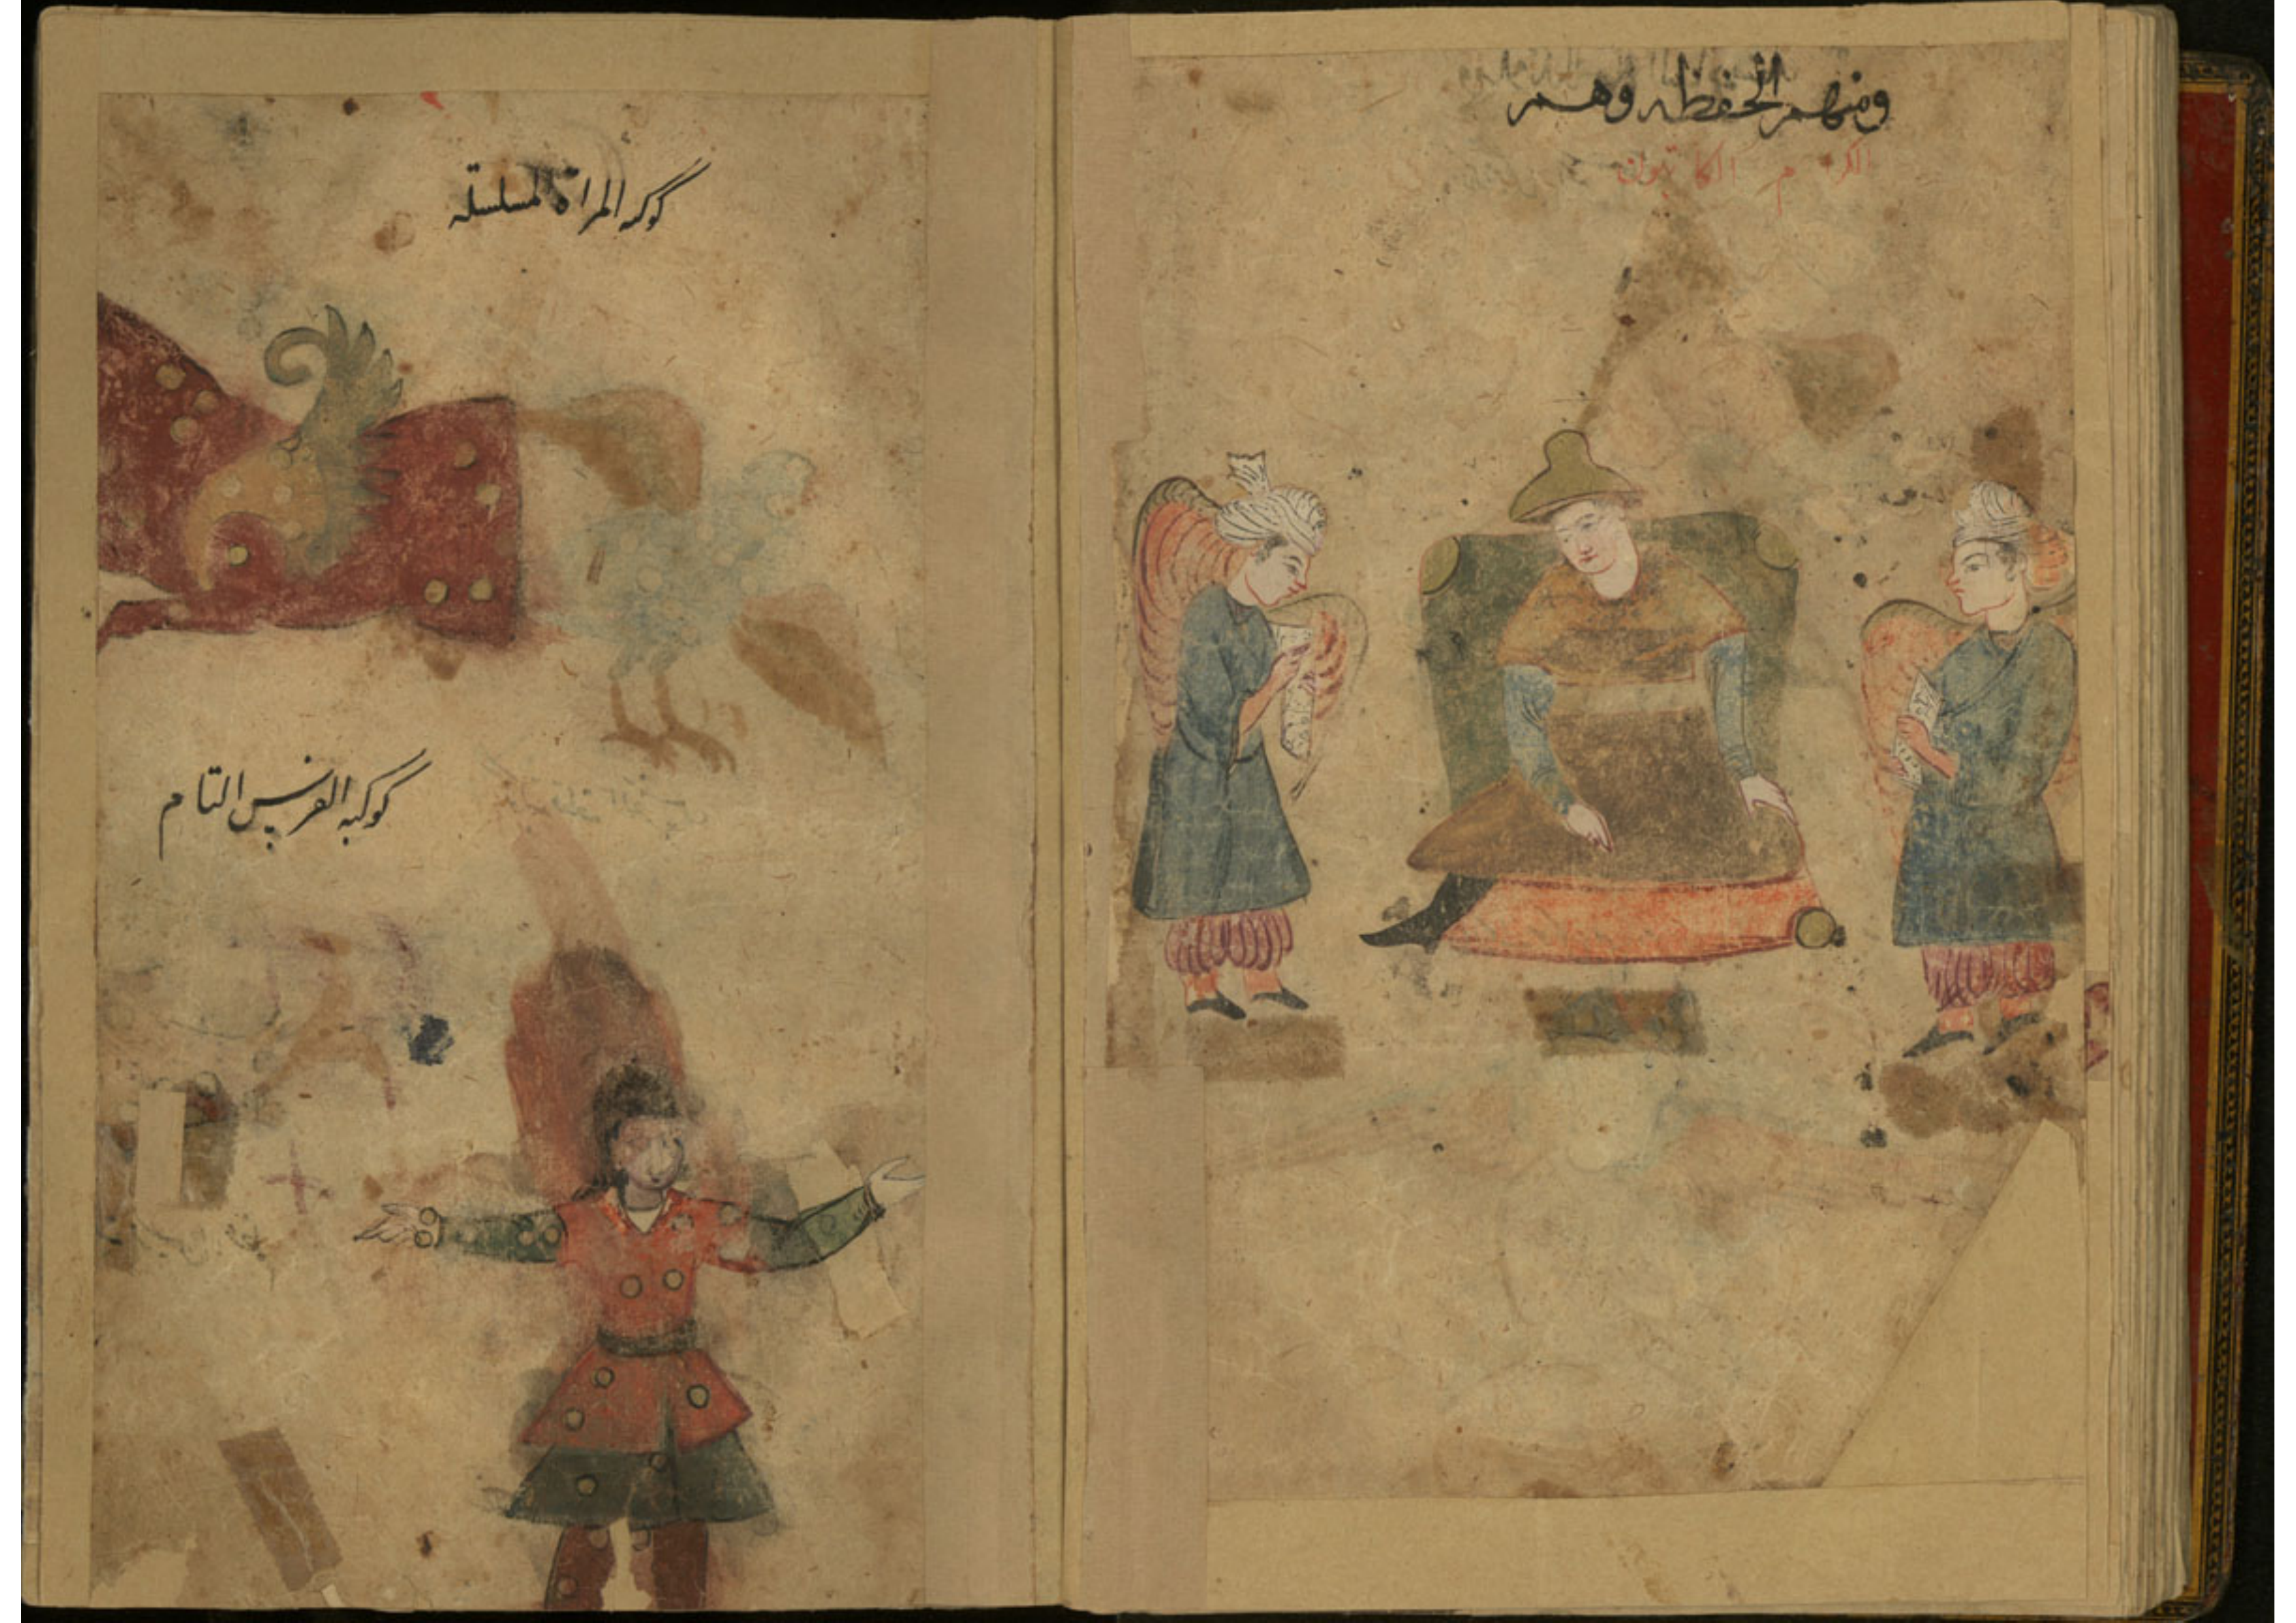 ومنهم الحفظه وهم
الكرام الكاتبون
كوكبه المراة المسلسلة
كوكبه الفرس التام